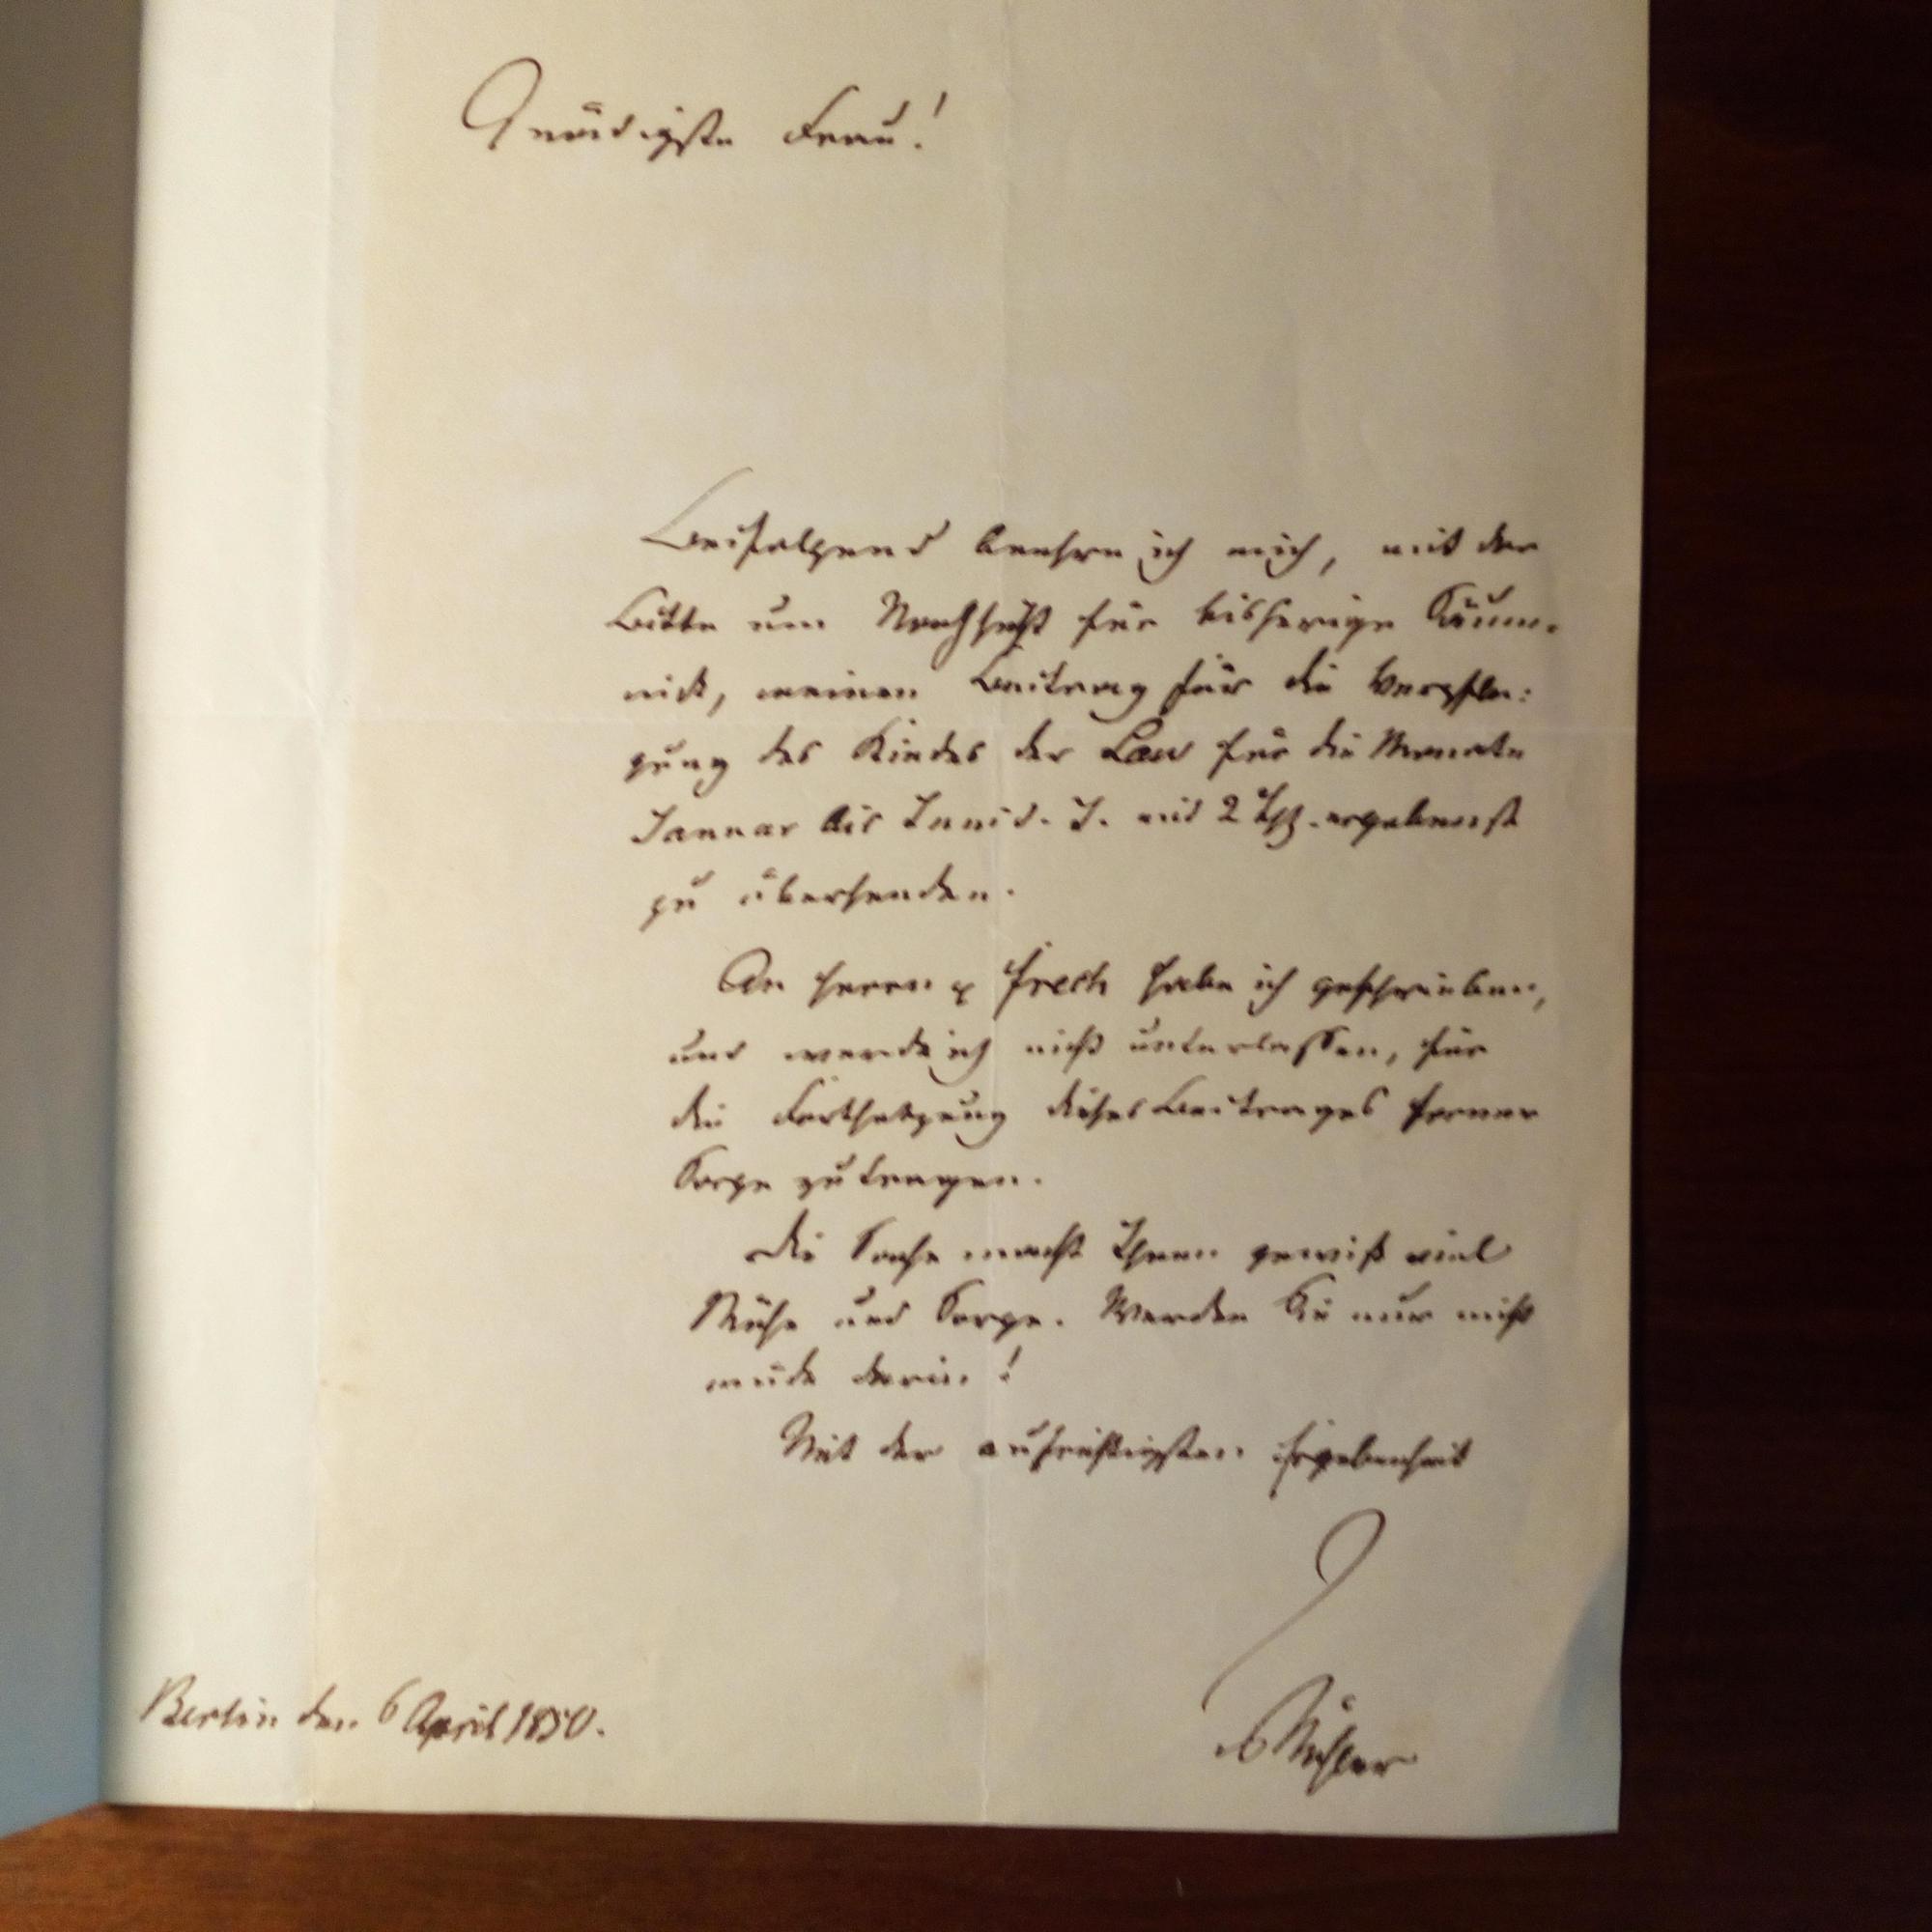 Gnädigste Frau!
Beifolgend beehre ich mich, mit der
Bitte um Nachsicht für bisherige Säum-
niß, meinen Beitrag für die Verpfle-
gung des Kindes der Lau für die Monate
Januar bis Juni d. J. mit 2 ergebenst
zu übersenden.
An Herrn Frech habe ich geschrieben,
und werde ich nicht unterlassen, für
die Fortsetzung dieses Beitrages ferner
Sorge zu tragen.
Die Sache macht Ihnen gewiß viel
Mühe und Sorge. Werden Sie nur nicht
müde darin!
Mit der aufrichtigsten Ergebenheit
Mühler
Berlin den 6 April 1850.